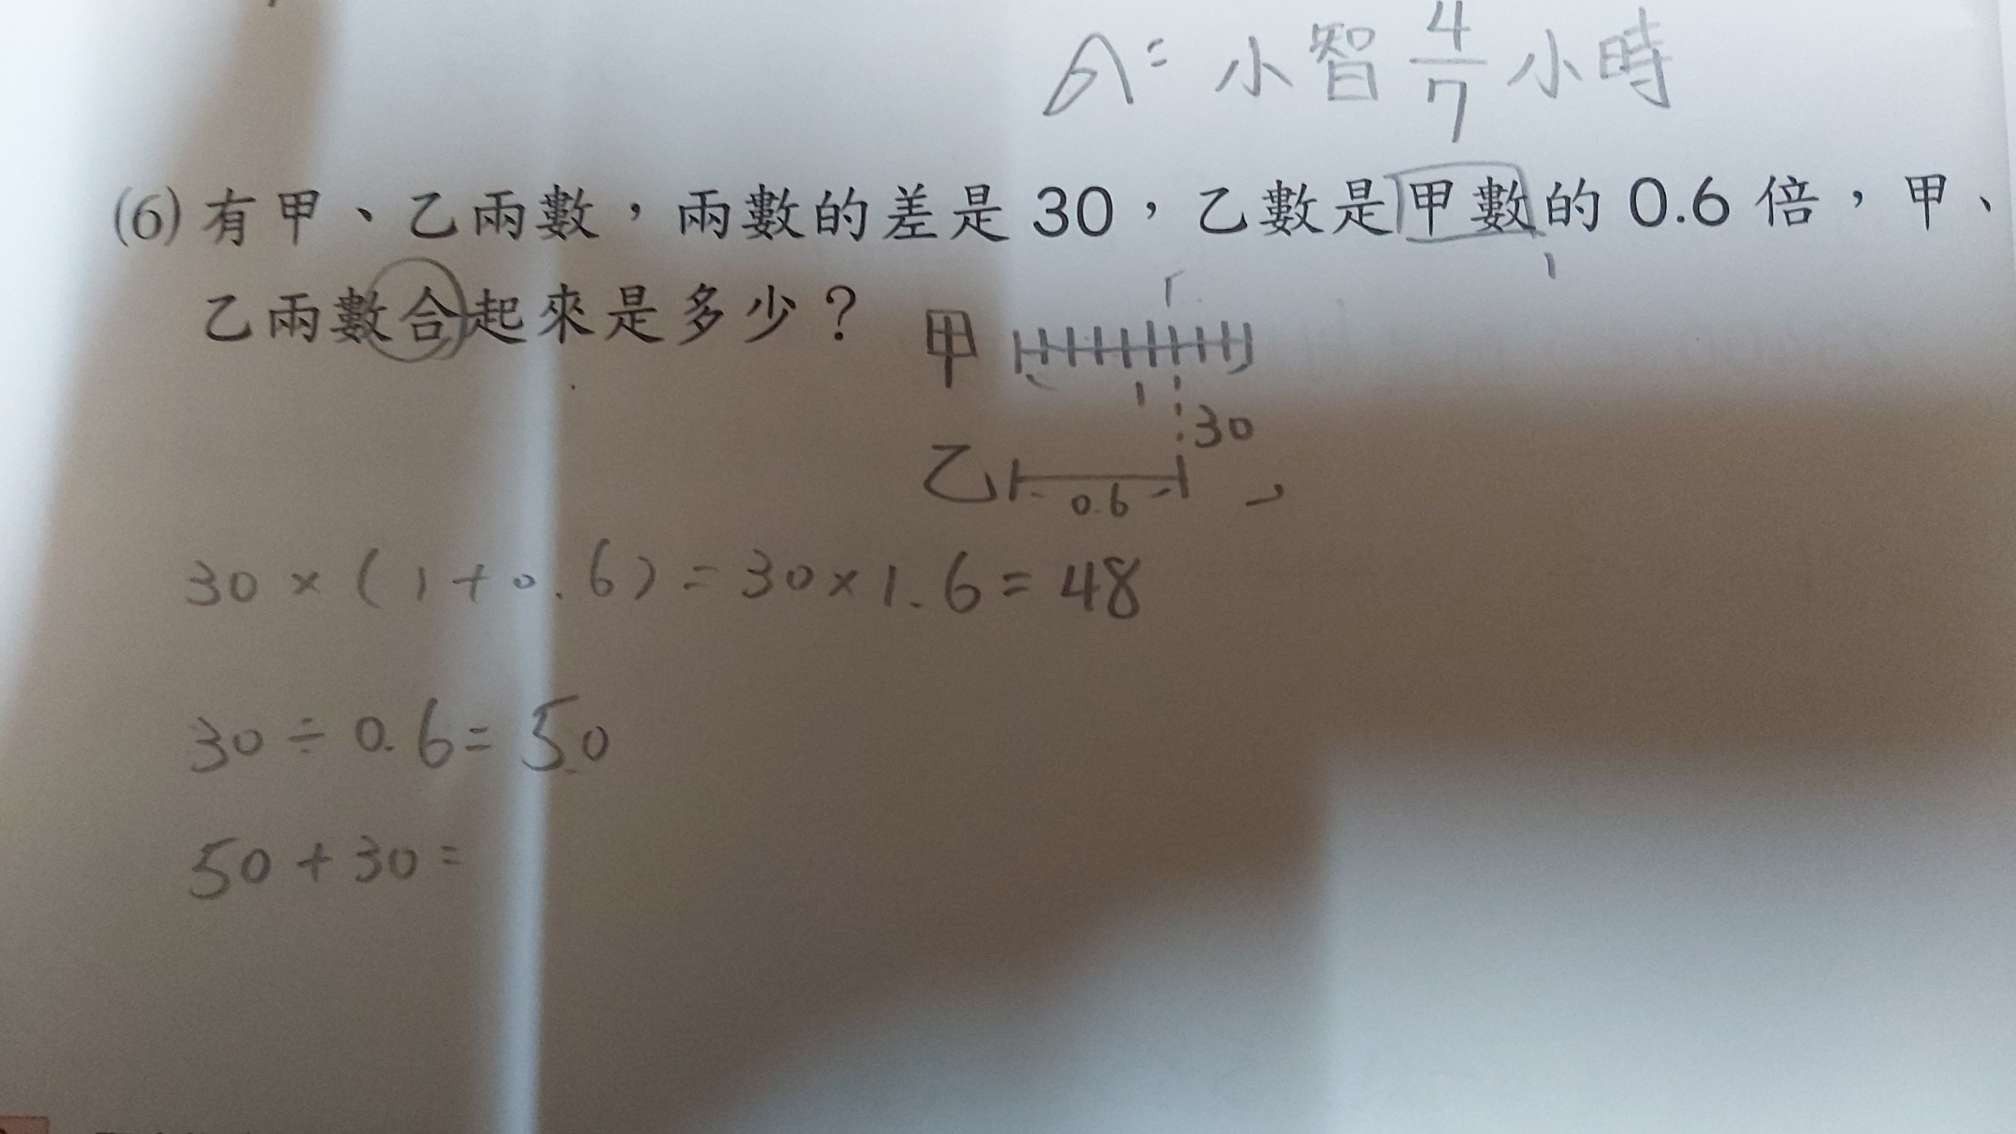 A= 小智 4/7 小時
(6) 有甲、乙兩數，兩數的差是 30，乙數是甲數的 0.6 倍，甲、
1
乙兩數合起來是多少？
甲
1
30
乙
0.6
30 × ( 1 + 0.6 ) = 30 × 1.6 = 48
30 ÷ 0.6 = 50
50 + 30 =